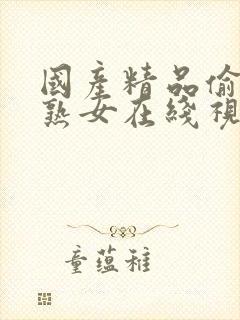 國產精品偷
熟女在綫視
童蘊稚